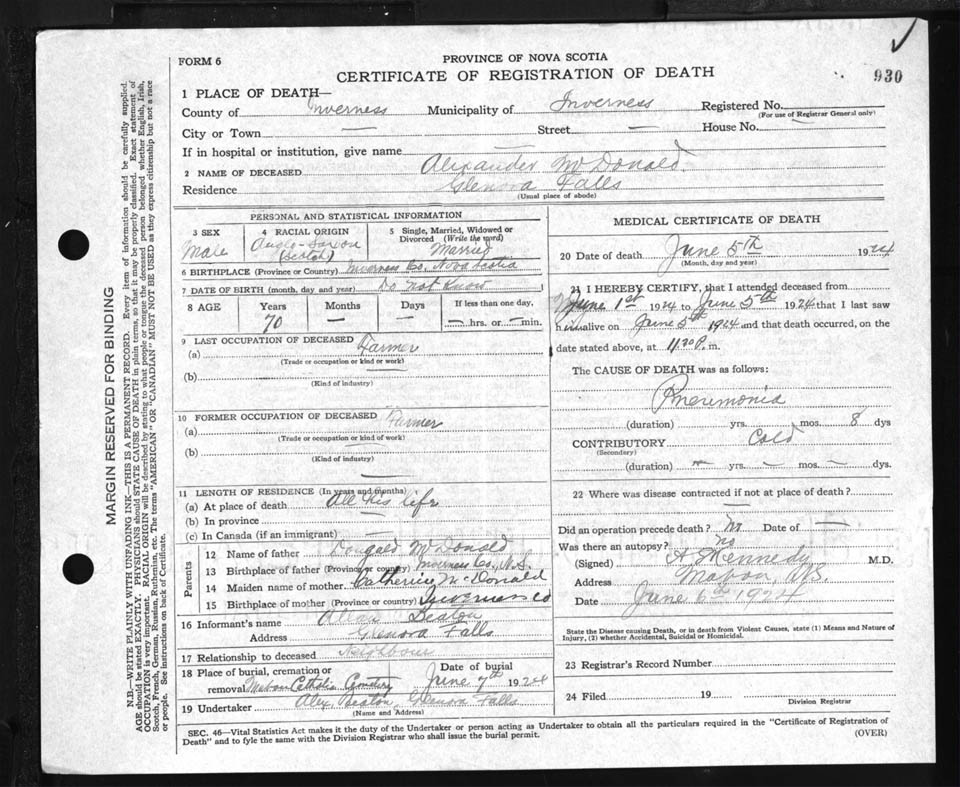 MARGIN RESERVED FOR BINDING
N.B.—WRITE PLAINLY WITH UNFADING INK—THIS IS A PERMANENT RECORD. Every item of information should be carefully supplied.
AGE should be stated EXACTLY. PHYSICIANS should STATE CAUSE OF DEATH in plain terms, so that it may be properly classified. Exact statement of
OCCUPATION is very important. RACIAL ORIGIN will be described by stating to what people or tongue the deceased person belonged whether English, Irish,
Scotch, French, German, Russian, Ruthenian, etc. The terms "AMERICAN" OR "CANADIAN" MUST NOT BE USED as they express citizenship but not a race
or people. See instructions on back of Certificate.
FORM 6
PROVINCE OF NOVA SCOTIA
CERTIFICATE OF REGISTRATION OF DEATH
930
1 PLACE OF DEATH—
County of Inverness Municipality of Inverness Registered No.
(For use of Registrar General only)
City or Town — Street — House No. —
If in hospital or institution, give name —
2 NAME OF DECEASED Alexander McDonald
Residence Glenora Falls
(Usual place of abode)
PERSONAL AND STATISTICAL INFORMATION
3 SEX Male
4 RACIAL ORIGIN Anglo-Saxon (Scotch)
5 Single, Married, Widowed or Divorced (Write the word) Married
6 BIRTHPLACE (Province or Country) Inverness Co, Nova Scotia
7 DATE OF BIRTH (month, day and year) Do not Know
8 AGE Years 70 Months — Days — If less than one day, — hrs. or — min.
9 LAST OCCUPATION OF DECEASED
(a) Farmer
(Trade or occupation or kind or work)
(b)
(Kind of industry)
10 FORMER OCCUPATION OF DECEASED
(a) Farmer
(Trade or occupation or kind of work)
(b)
(Kind of industry)
11 LENGTH OF RESIDENCE (In years and months)
(a) At place of death All his life
(b) In province —
(c) In Canada (if an immigrant) —
Parents
12 Name of father Dougald McDonald
13 Birthplace of father (Province or country) Inverness Co, N.S.
14 Maiden name of mother Catherine McDonald
15 Birthplace of mother (Province or country) Inverness Co
16 Informant's name Allan Beaton
Address Glenora Falls
17 Relationship to deceased Neighbour
18 Place of burial, cremation or removal Mabou Catholic Cemetery Date of burial June 7th 1924
19 Undertaker Alex Beaton, Glenora Falls
(Name and Address)
MEDICAL CERTIFICATE OF DEATH
20 Date of death June 5th 1924
(Month, day and year)
21 I HEREBY CERTIFY, that I attended deceased from
June 1st 1924 to June 5th 1924 that I last saw
him alive on June 5th 1924 and that death occurred, on the
date stated above, at 11.30 P. m.
The CAUSE OF DEATH was as follows:
Pneumonia
(duration) yrs. mos. 8 dys
CONTRIBUTORY Cold
(Secondary)
(duration) — yrs. — mos. — dys.
22 Where was disease contracted if not at place of death?
—
Did an operation precede death? No Date of —
Was there an autopsy? no
(Signed) A Kennedy M.D.
Address Mabou, N.S.
Date June 6th 1924
State the Disease causing Death, or in death from Violent Causes, state (1) Means and Nature of
Injury, (2) whether Accidental, Suicidal or Homicidal.
23 Registrar's Record Number
24 Filed 19
Division Registrar
SEC. 46—Vital Statistics Act makes it the duty of the Undertaker or person acting as Undertaker to obtain all the particulars required in the "Certificate of Registration of
Death" and to fyle the same with the Division Registrar who shall issue the burial permit. (OVER)